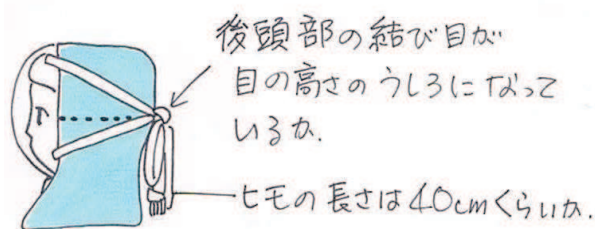 後頭部の結び目が
目の高さのうしろになって
いるか.
ヒモの長さは40cmくらいか.